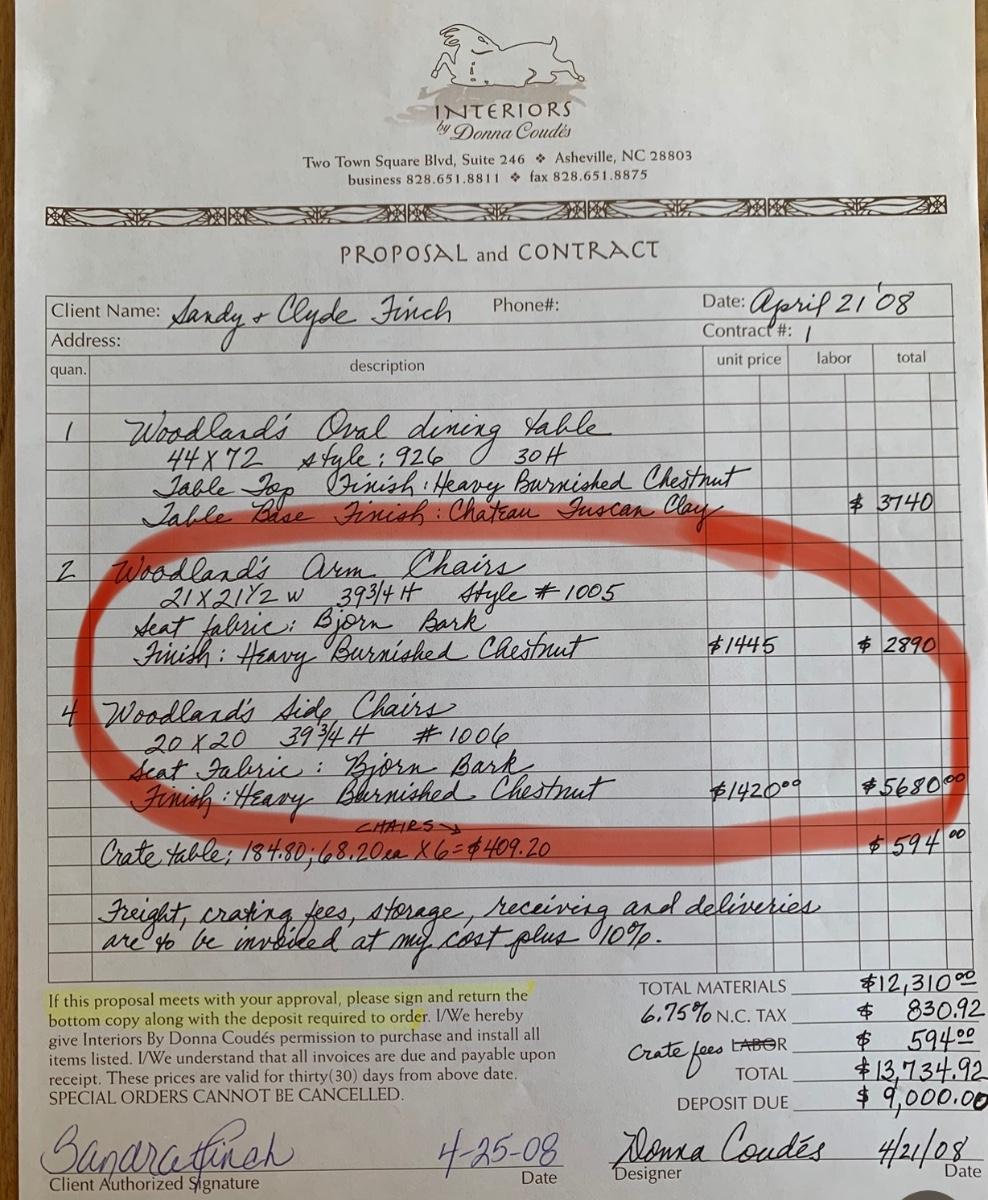 INTERIORS
by Donna Coudés
Two Town Square Blvd, Suite 246 ❖ Asheville, NC 28803
business 828.651.8811 ❖ fax 828.651.8875
PROPOSAL and CONTRACT
Client Name: Sandy + Clyde Finch Phone#: Date: April 21 '08
Address: Contract #: 1
quan. description unit price labor total
1 Woodland's Oval dining table
44 X 72 style: 926 30 H
Table Top Finish: Heavy Burnished Chestnut
Table Base Finish: Chateau Tuscan Clay $ 3740
2 Woodland's Arm Chairs
21 X 21 1/2 W 39 3/4 H Style # 1005
Seat fabric: Bjorn Bark
Finish: Heavy Burnished Chestnut $1445 $ 2890
4 Woodland's Side Chairs
20 X 20 39 3/4 H # 1006
Seat Fabric: Bjorn Bark
Finish: Heavy Burnished Chestnut $1420.00 $5680.00
CHAIRS
Crate table; 184.80; 68.20 ea X 6 = $409.20 $ 594.00
Freight, crating fees, storage, receiving and deliveries
are to be invoiced at my cost plus 10%.
If this proposal meets with your approval, please sign and return the
bottom copy along with the deposit required to order. I/We hereby
give Interiors By Donna Coudés permission to purchase and install all
items listed. I/We understand that all invoices are due and payable upon
receipt. These prices are valid for thirty(30) days from above date.
SPECIAL ORDERS CANNOT BE CANCELLED.
TOTAL MATERIALS $12,310.00
6.75% N.C. TAX $ 830.92
Crate fees LABOR $ 594.00
TOTAL $13,734.92
DEPOSIT DUE $ 9,000.00
Sandra Finch 4-25-08 Donna Coudés 4/21/08
Client Authorized Signature Date Designer Date